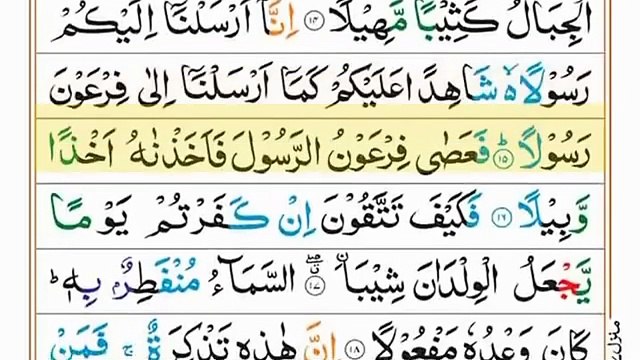 الْجِبَالُ كَثِيْبًا مَّهِيْلًا ۝۱۴ اِنَّاۤ اَرْسَلْنَاۤ اِلَيْكُمْ
رَسُوْلًا ۬ۙ شَاهِدًا عَلَيْكُمْ كَمَاۤ اَرْسَلْنَاۤ اِلٰى فِرْعَوْنَ
رَسُوْلًا ؕ۝۱۵ فَعَصٰى فِرْعَوْنُ الرَّسُوْلَ فَاَخَذْنٰهُ اَخْذًا
وَّبِيْلًا ۝۱۶ فَكَيْفَ تَتَّقُوْنَ اِنْ كَفَرْتُمْ يَوْمًا
يَّجْعَلُ الْوِلْدَانَ شِيْبَاۨ ۖۗ ۝۱۷ السَّمَآءُ مُنْفَطِرٌۢ بِهٖ ؕ
كَانَ وَعْدُهٗ مَفْعُوْلًا ۝۱۸ اِنَّ هٰذِهٖ تَذْكِرَةٌ ۚ فَمَنْ